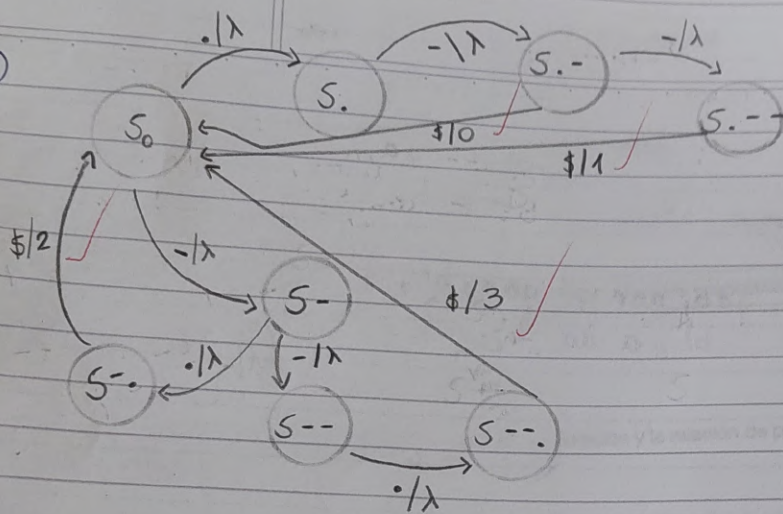 ·/λ
-/λ
-/λ
S0
S.
S.-
S.--
$/0
$/1
$/2
-/λ
S-
$/3
·/λ
-/λ
S-.
S--
S--.
·/λ